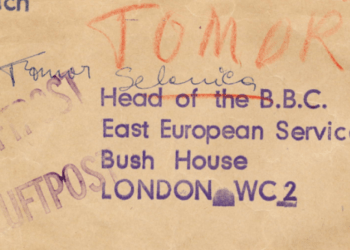 ch
TOMOR
Tomor Selenica
Head of the B.B.C.
East European Servic
Bush House
LONDON WC2
LUFTPOST
LUFTPOST